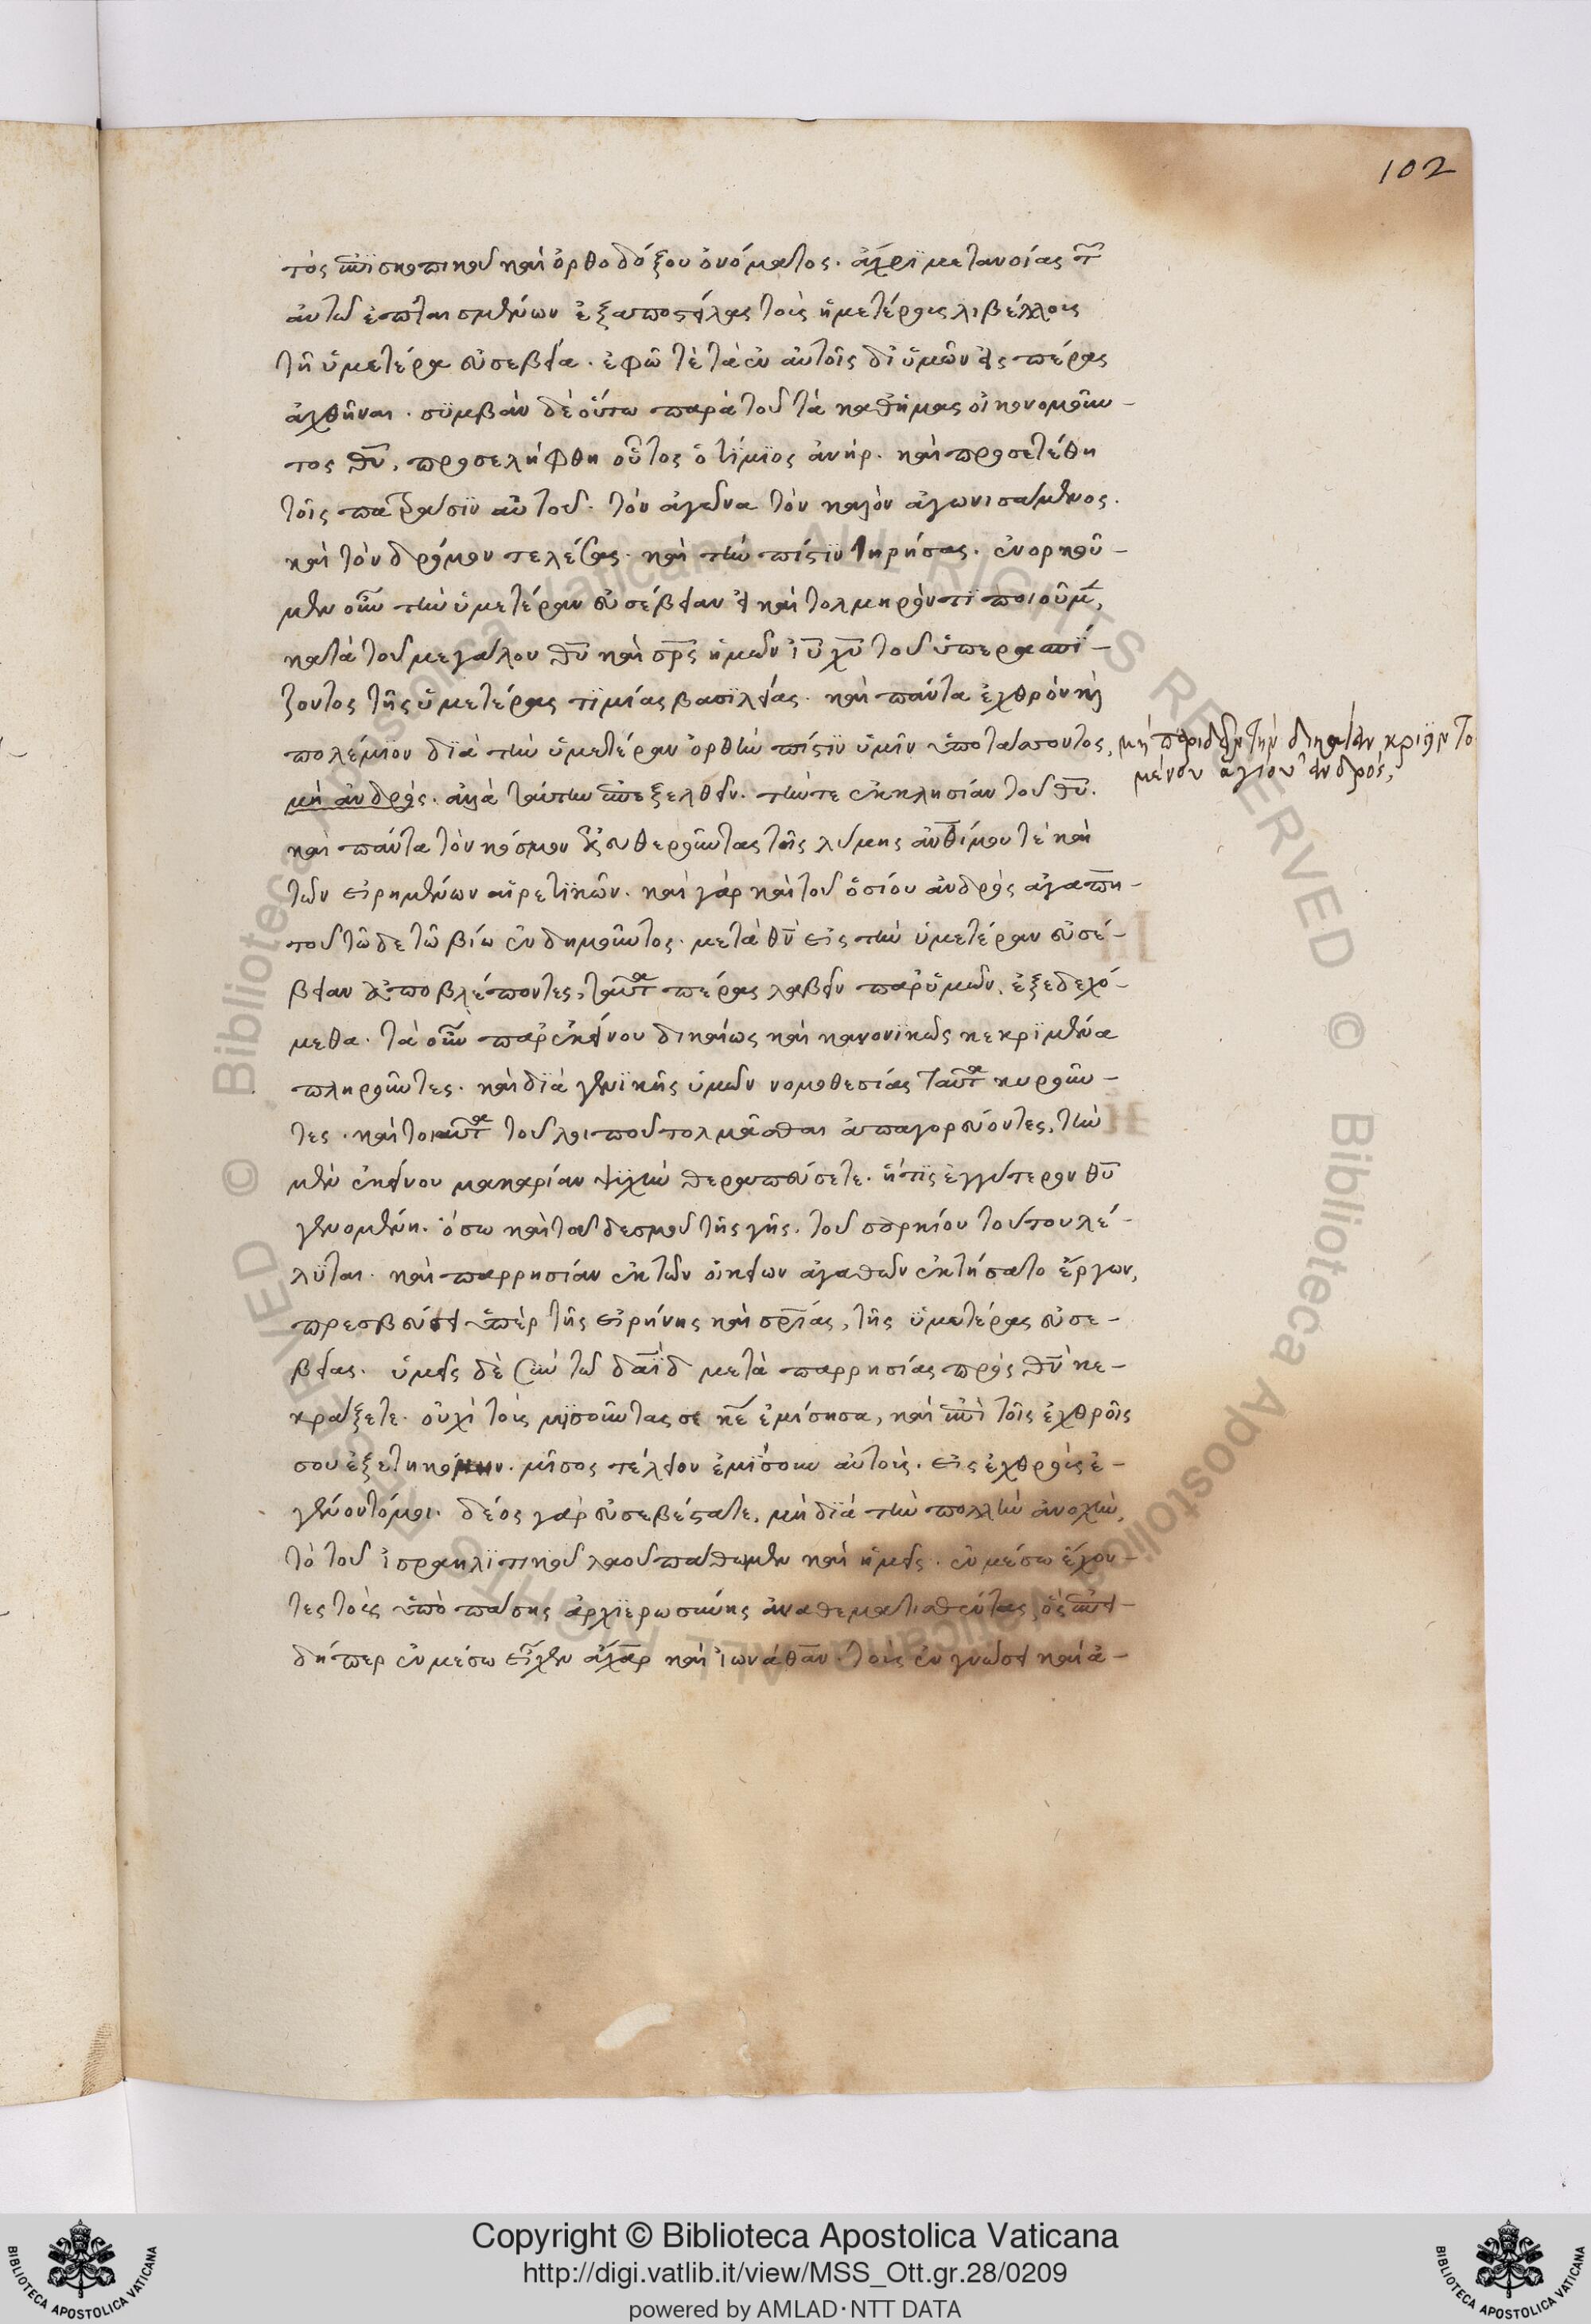 102
τὸς ἐπϊσκοπικοῦ καὶ ὀρθοδόξου ὀνόματος. ἄχρϊ μετανοίας τ῀
αὐτῶ ἐπταισμένων ἐξαποστείλας τοὺς ἡμετέρους λιβέλλους
τῆ ὑμετέρα εὐσεβεία. ἐφῶ τὲ τὰ ἐν αὐτοῖς δι ὑμῶν εἰς πέρας
ἀχθῆναι. σϋμβὰν δὲ οὕτω παρὰ τοῦ τὰ καθ ἡμας οἰκονομοῦν-
τος θῦ, προσελήφθη οὗτος ὁ τίμϊος ἀνήρ. καὶ προσετέθη
τοῖς πατράσϊν αὐτοῦ. τὸν ἀγῶνα τὸν καλὸν ἀγωνισάμενος.
καὶ τὸν δρόμον τελέσας. καὶ τὴν πίστϊν τηρήσας. ἐνορκοῦ-
μεν οὖν τὴν ὑμετέραν εὐσέβειαν εἰ καὶ τολμηρὸν τϊ ποιοῦμ̅,
κατὰ τοῦ μεγάλου θῦ καὶ σρ̅ς ἡμῶν ἰῦ χῦ τοῦ ὑπερασπί-
ζοντος τῆς ὑμετέρας τϊμίας βασϊλείας. καὶ πάντα ἐχθρὸν κὶ
πολέμϊον δϊὰ τὴν ὑμετέραν ὀρθὴν πίστϊν ὑμῖν ὑποτάσσοντος, μὴ περιδεῖν τὴν δικαίαν κρίσιν το
μένου ἁγίου ἀνδρός,
μὴ ἀνδρός. ἀλλὰ ταύτην ἐπεξελθεῖν. τήν τε ἐκκλησίαν τοῦ θῦ.
καὶ πάντα τὸν κόσμον ἐξελευθεροῦντας τῆς λύμης ἀνθίμου τὲ καὶ
τῶν εἰρημένων αἱρετϊκῶν. καὶ γὰρ καὶ τοῦ ὁσίου ἀνδρὸς ἀγαπη-
τοῦ τῶδε τῶ βίω ἐνδημοῦντος. μετὰ θν̅ εἰς τὴν ὑμετέραν εὐσέ-
βειαν ἀποβλέποντες, ταῦτα πέρας λαβεῖν παρ ὑμῶν, ἐξεδεχό-
μεθα. τὰ οὖν παρ ἐκείνου δικαίως καὶ κανονϊκῶς κεκρϊμένα
πληροῦντες. καὶ δϊὰ γενϊκῆς ὑμῶν νομοθεσίας ταῦτα κυροῦν-
τες. καὶ τοιαῦτα τοῦ λοιποῦ τολμᾶσθαι ἀπαγορεύοντες, τὴν
μὲν ἐκείνου μακαρίαν ψϋχὴν θεραπεύσετε. ἥτϊς ἐγγύτερον θῦ
γενομένη. ὅσω καὶ τοῦ δεσμοῦ τῆς γῆς. τοῦ σαρκίου τούτου λέ-
λϋται. καὶ παρρησίαν ἐκ τῶν οἰκείων ἀγαθῶν ἐκτήσατο ἔργων,
πρεσβεύσει ὑπὲρ τῆς εἰρήνης καὶ σρ̅ίας, τῆς ὑμετέρας εὐσε-
βείας. ὑμεῖς δὲ σὺν τῶ δα̅ϊδ μετὰ παρρησίας πρὸς θν̅ κε-
κράξετε. οὐχὶ τοὺς μϊσοῦντας σε κε̅ ἐμίσησα, καὶ ἐπὶ τοῖς ἐχθροῖς
σου ἐξετηκόμην. μῖσος τέλειον ἐμίσουν αὐτοὺς. εἰς ἐχθροὺς ἐ-
γένοντό μοι. δέος γὰρ εὐσεβέστατε, μὴ δϊὰ τὴν πολλὴν ἀνοχὴν,
τὸ τοῦ ἰσραηλϊτικοῦ λαοῦ πάθωμεν καὶ ἡμεῖς. ἐν μέσω ἔχον-
τες τοὺς ὑπὸ πάσης ἀρχϊερωσύνης ἀναθεματισθέντας, ὡς ἐπεὶ-
δήπερ ἐν μέσω εἶχεν ἄχαρ καὶ ἰωνάθαν. τοὺς ἐν γνώσει καὶ ἀ-
Copyright © Biblioteca Apostolica Vaticana
http://digi.vatlib.it/view/MSS_Ott.gr.28/0209
powered by AMLAD·NTT DATA